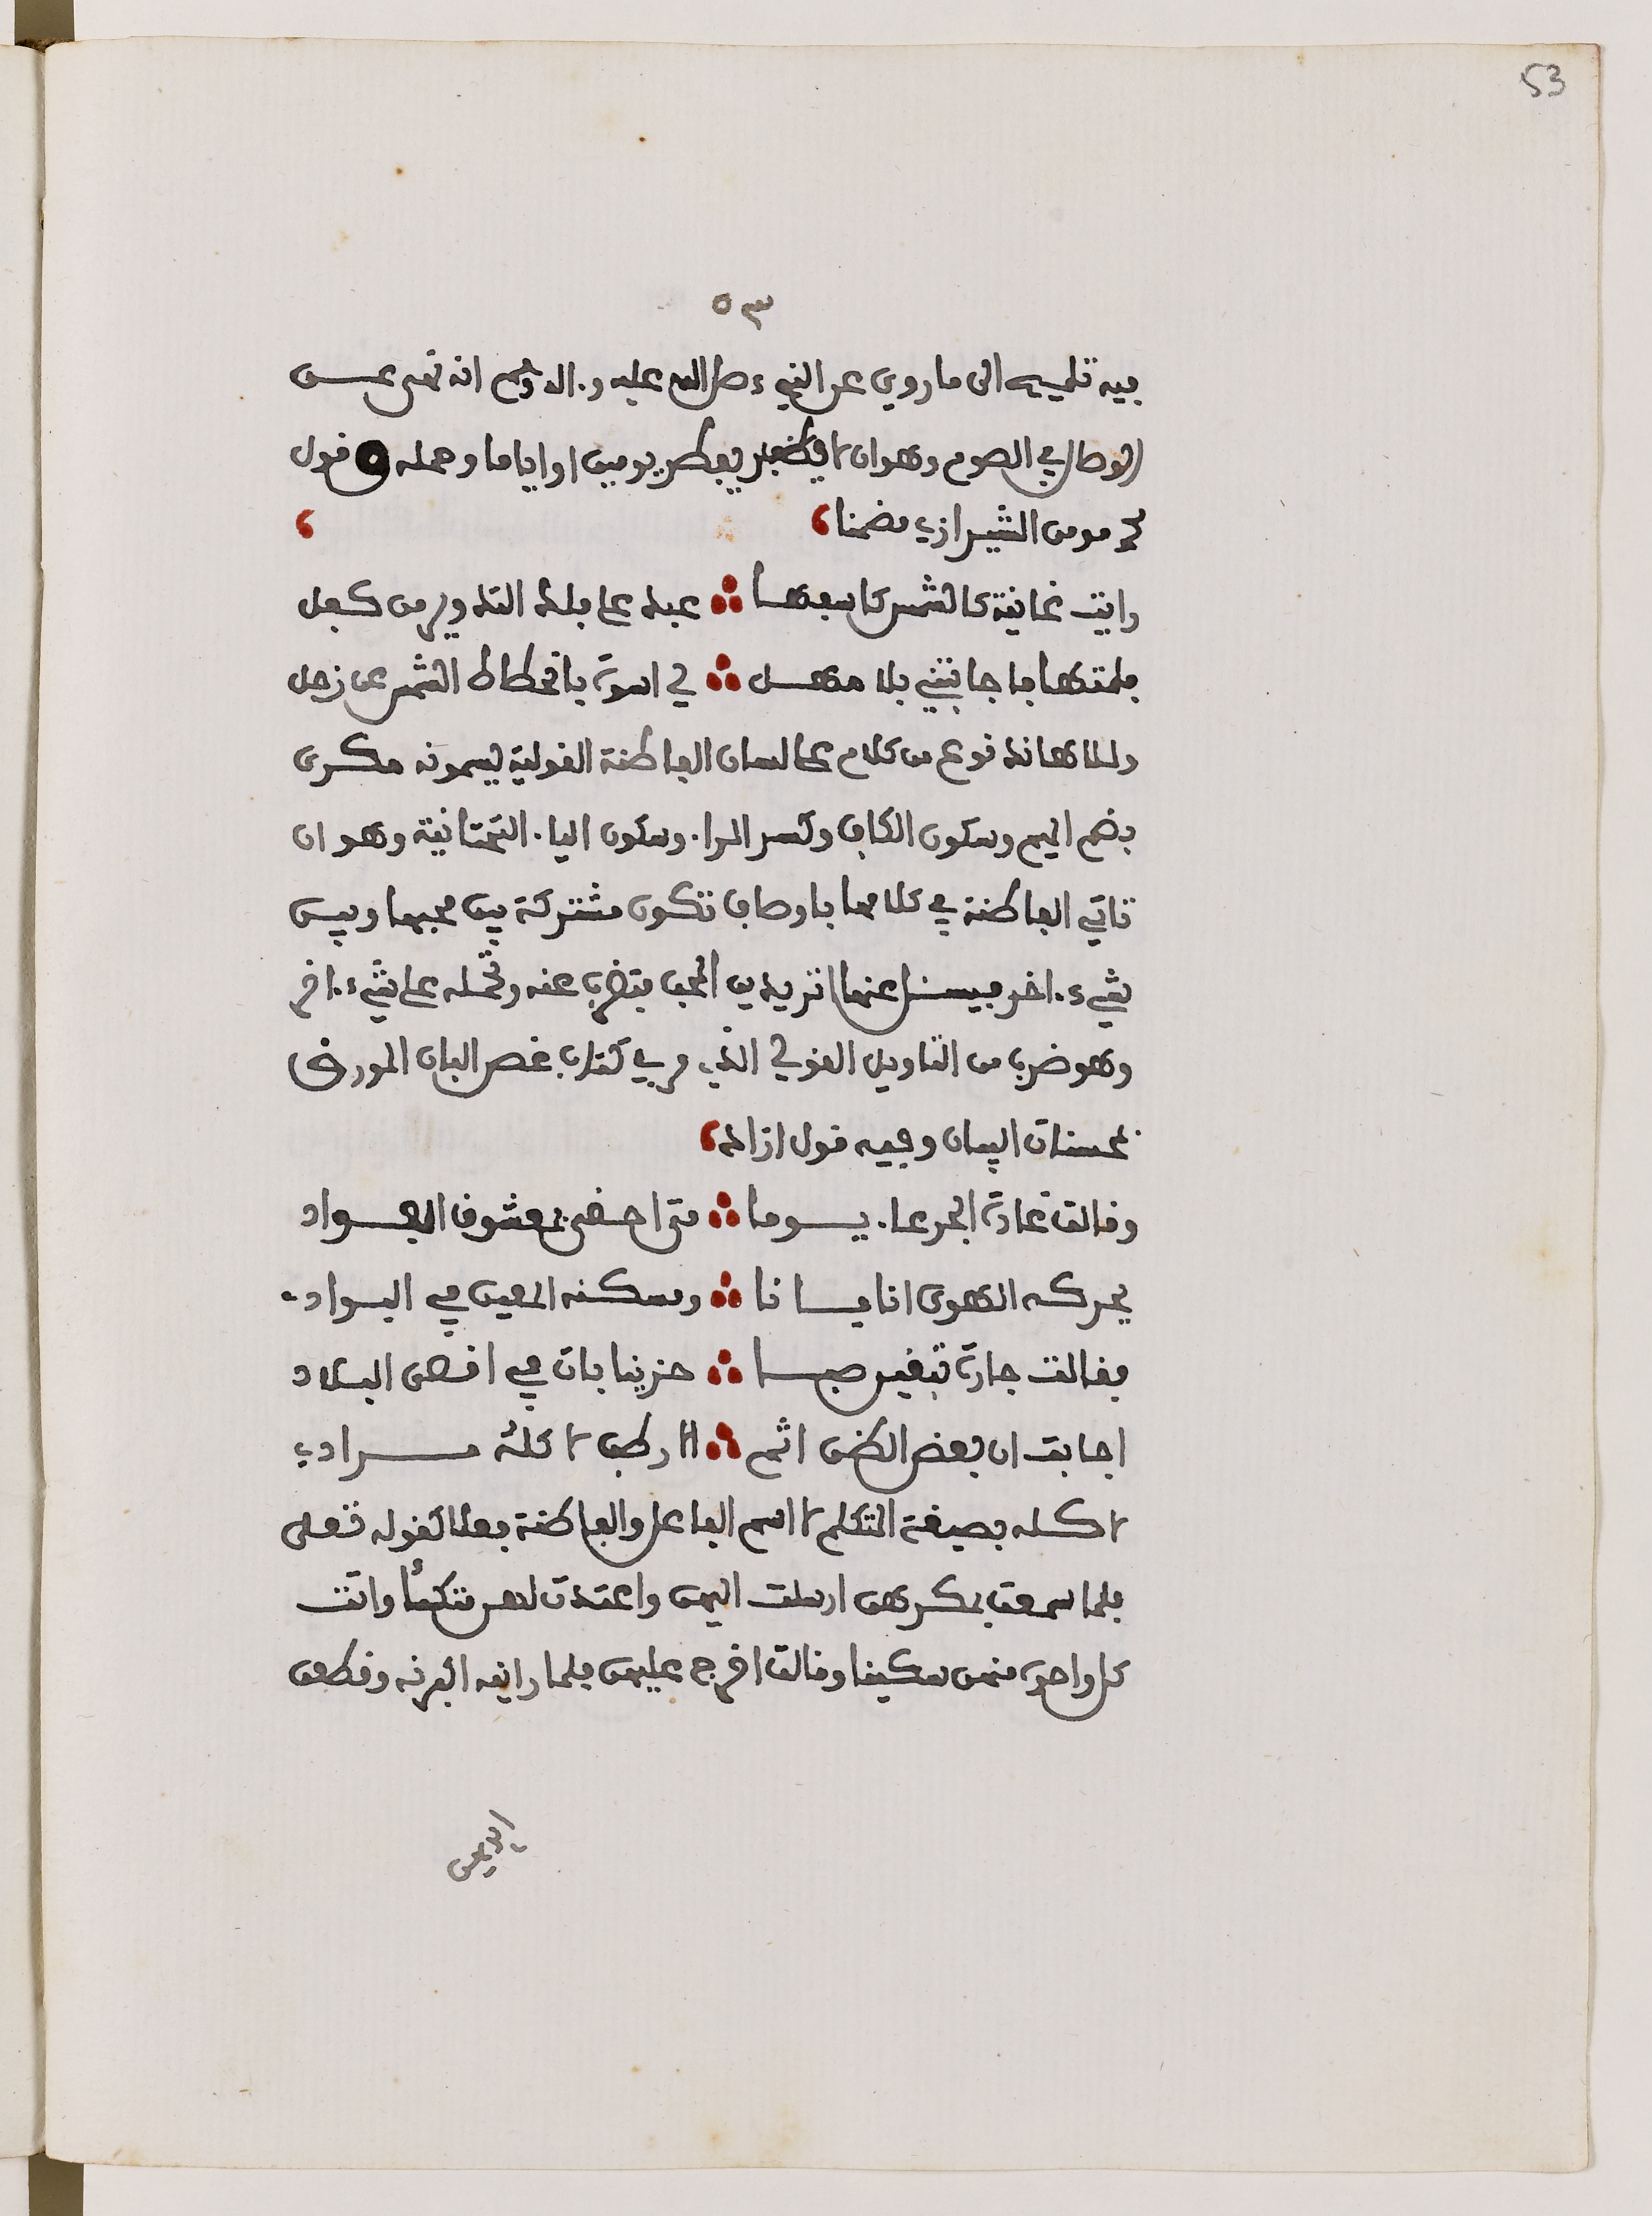 53
٥٣
فيه تلميح الى ما روي عن النبيء صلى الله عليه وءاله وسلم انه نهى عن
الوصال في الصوم وهو ان لا يفطر يومين او اياما ومثله قول
محمد مومن الشيرازي مضمنا
رايت غانية كالشمس بعدها ؞ عبد على فلك التدوير من كفل
فلمتها فاجابتني بلا مهل ؞ لي اسوة بانحطاط الشمس عن زحل
وللاهاند نوع من كلام على لسان الفاطنة القولية يسمونه مكرى
بضم الميم وسكون الكاف وكسر الراء وسكون الياء التحتانية وهو ان
تاتي الفاطنة في كلامها باوصاف تكون مشتركة بين محبها وبين
شيء ءاخر فيسئل عنها اتريدين المحب فتضرب عنه وتحمله على شيء ءاخر
وهو ضرب من التاويل القولي الذي مر في كتاب غصن البان المورق
بمحسنات البيان وفيه قول ازاد
وقالت غادة الجرعاء يوما ؞ متى احضى بمعشوق الفواد
يحركه الهوى انا فانا ؞ ومسكنه المعين في البوادي
فقالت جارة تبغين صبا ؞ حزينا بات في اقصى البلاد
اجابت ان بعض الظن اثم ؞ اراك لاكله مرادي
لاكله بصيغة المتكلم لا اسم الفاعل والفاطنة بعد القوله تعلى
فلما سمعت بمكرهن ارسلت اليهن واعتدت لهن متكئا واتت
كل واحدة منهن سكينا وقالت اخرج عليهن فلما راينه اكبرنه وقطعن
ايديهن